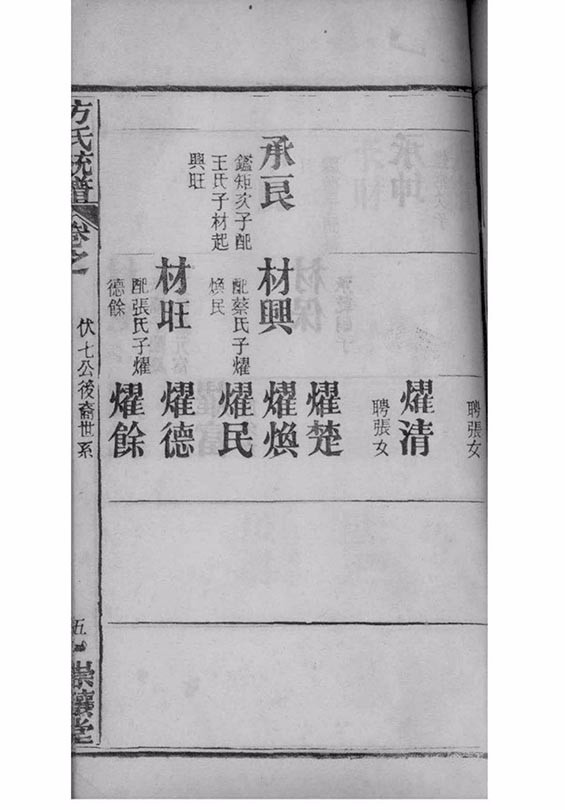 聘張女
燿清
聘張女
燿楚
承民
鑑矩次子配
王氏子材起
興旺
材興
配蔡氏子燿
煥民
燿煥
燿民
材旺
配張氏子燿
德餘
燿德
燿餘
方氏統譜
卷之
伏七公後裔世系
五
崇讓堂